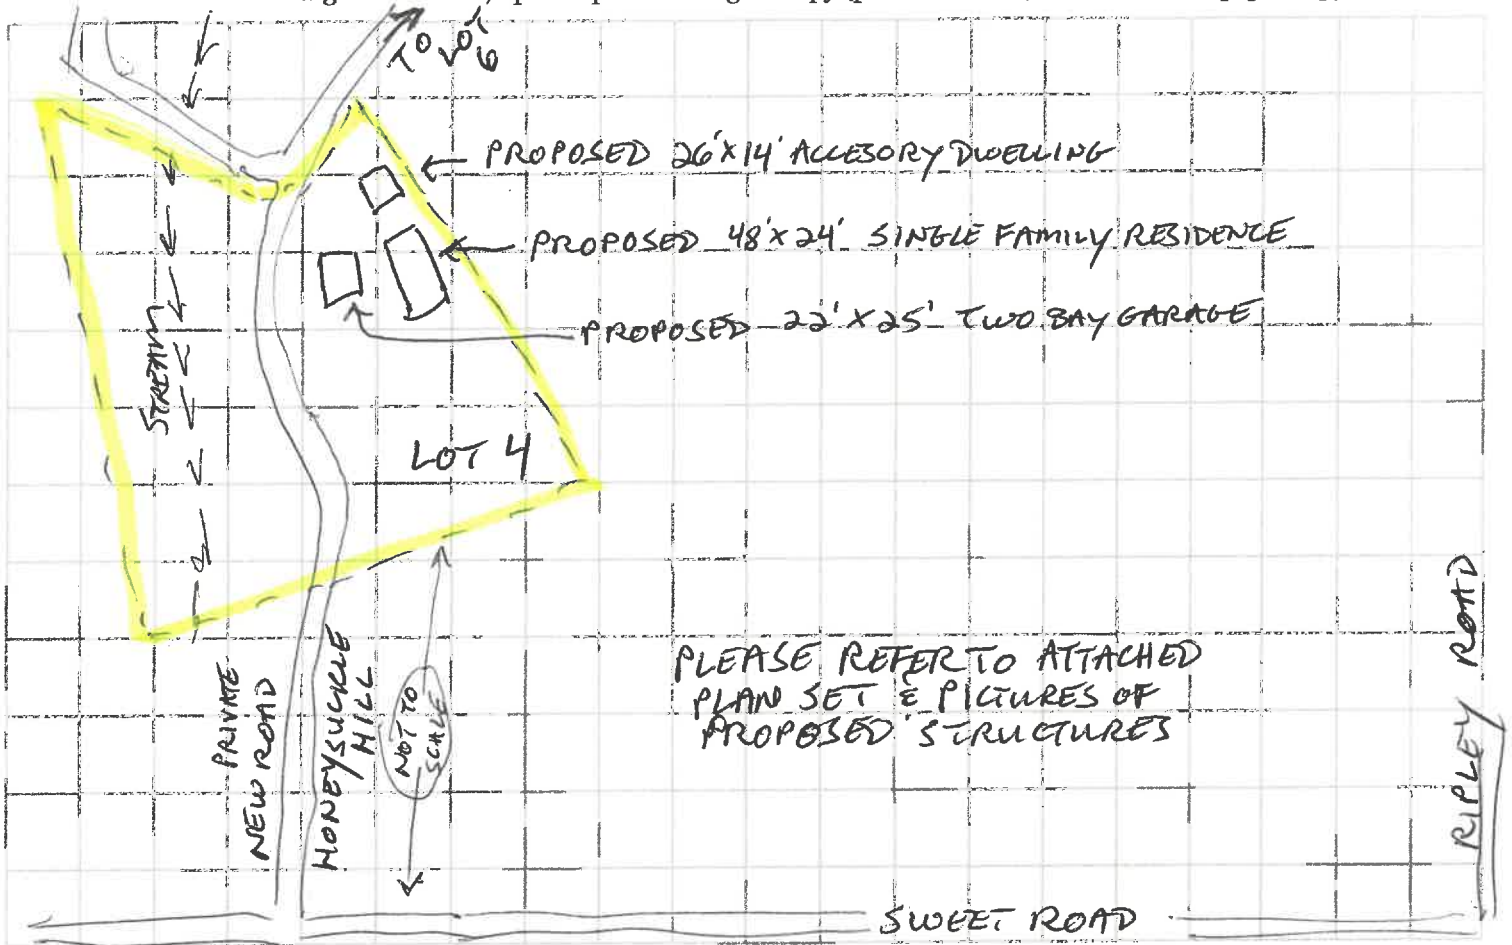 TO LOT 6
PROPOSED 26'X14' ACCESORY DWELLING
PROPOSED 48'X24' SINGLE FAMILY RESIDENCE
PROPOSED 22'X25' TWO BAY GARAGE
STREAM
LOT 4
PRIVATE
NEW ROAD
HONEYSUCKLE
HILL
NOT TO
SCALE
PLEASE REFER TO ATTACHED
PLAN SET & PICTURES OF
PROPOSED STRUCTURES
RIPLEY ROAD
SWEET ROAD